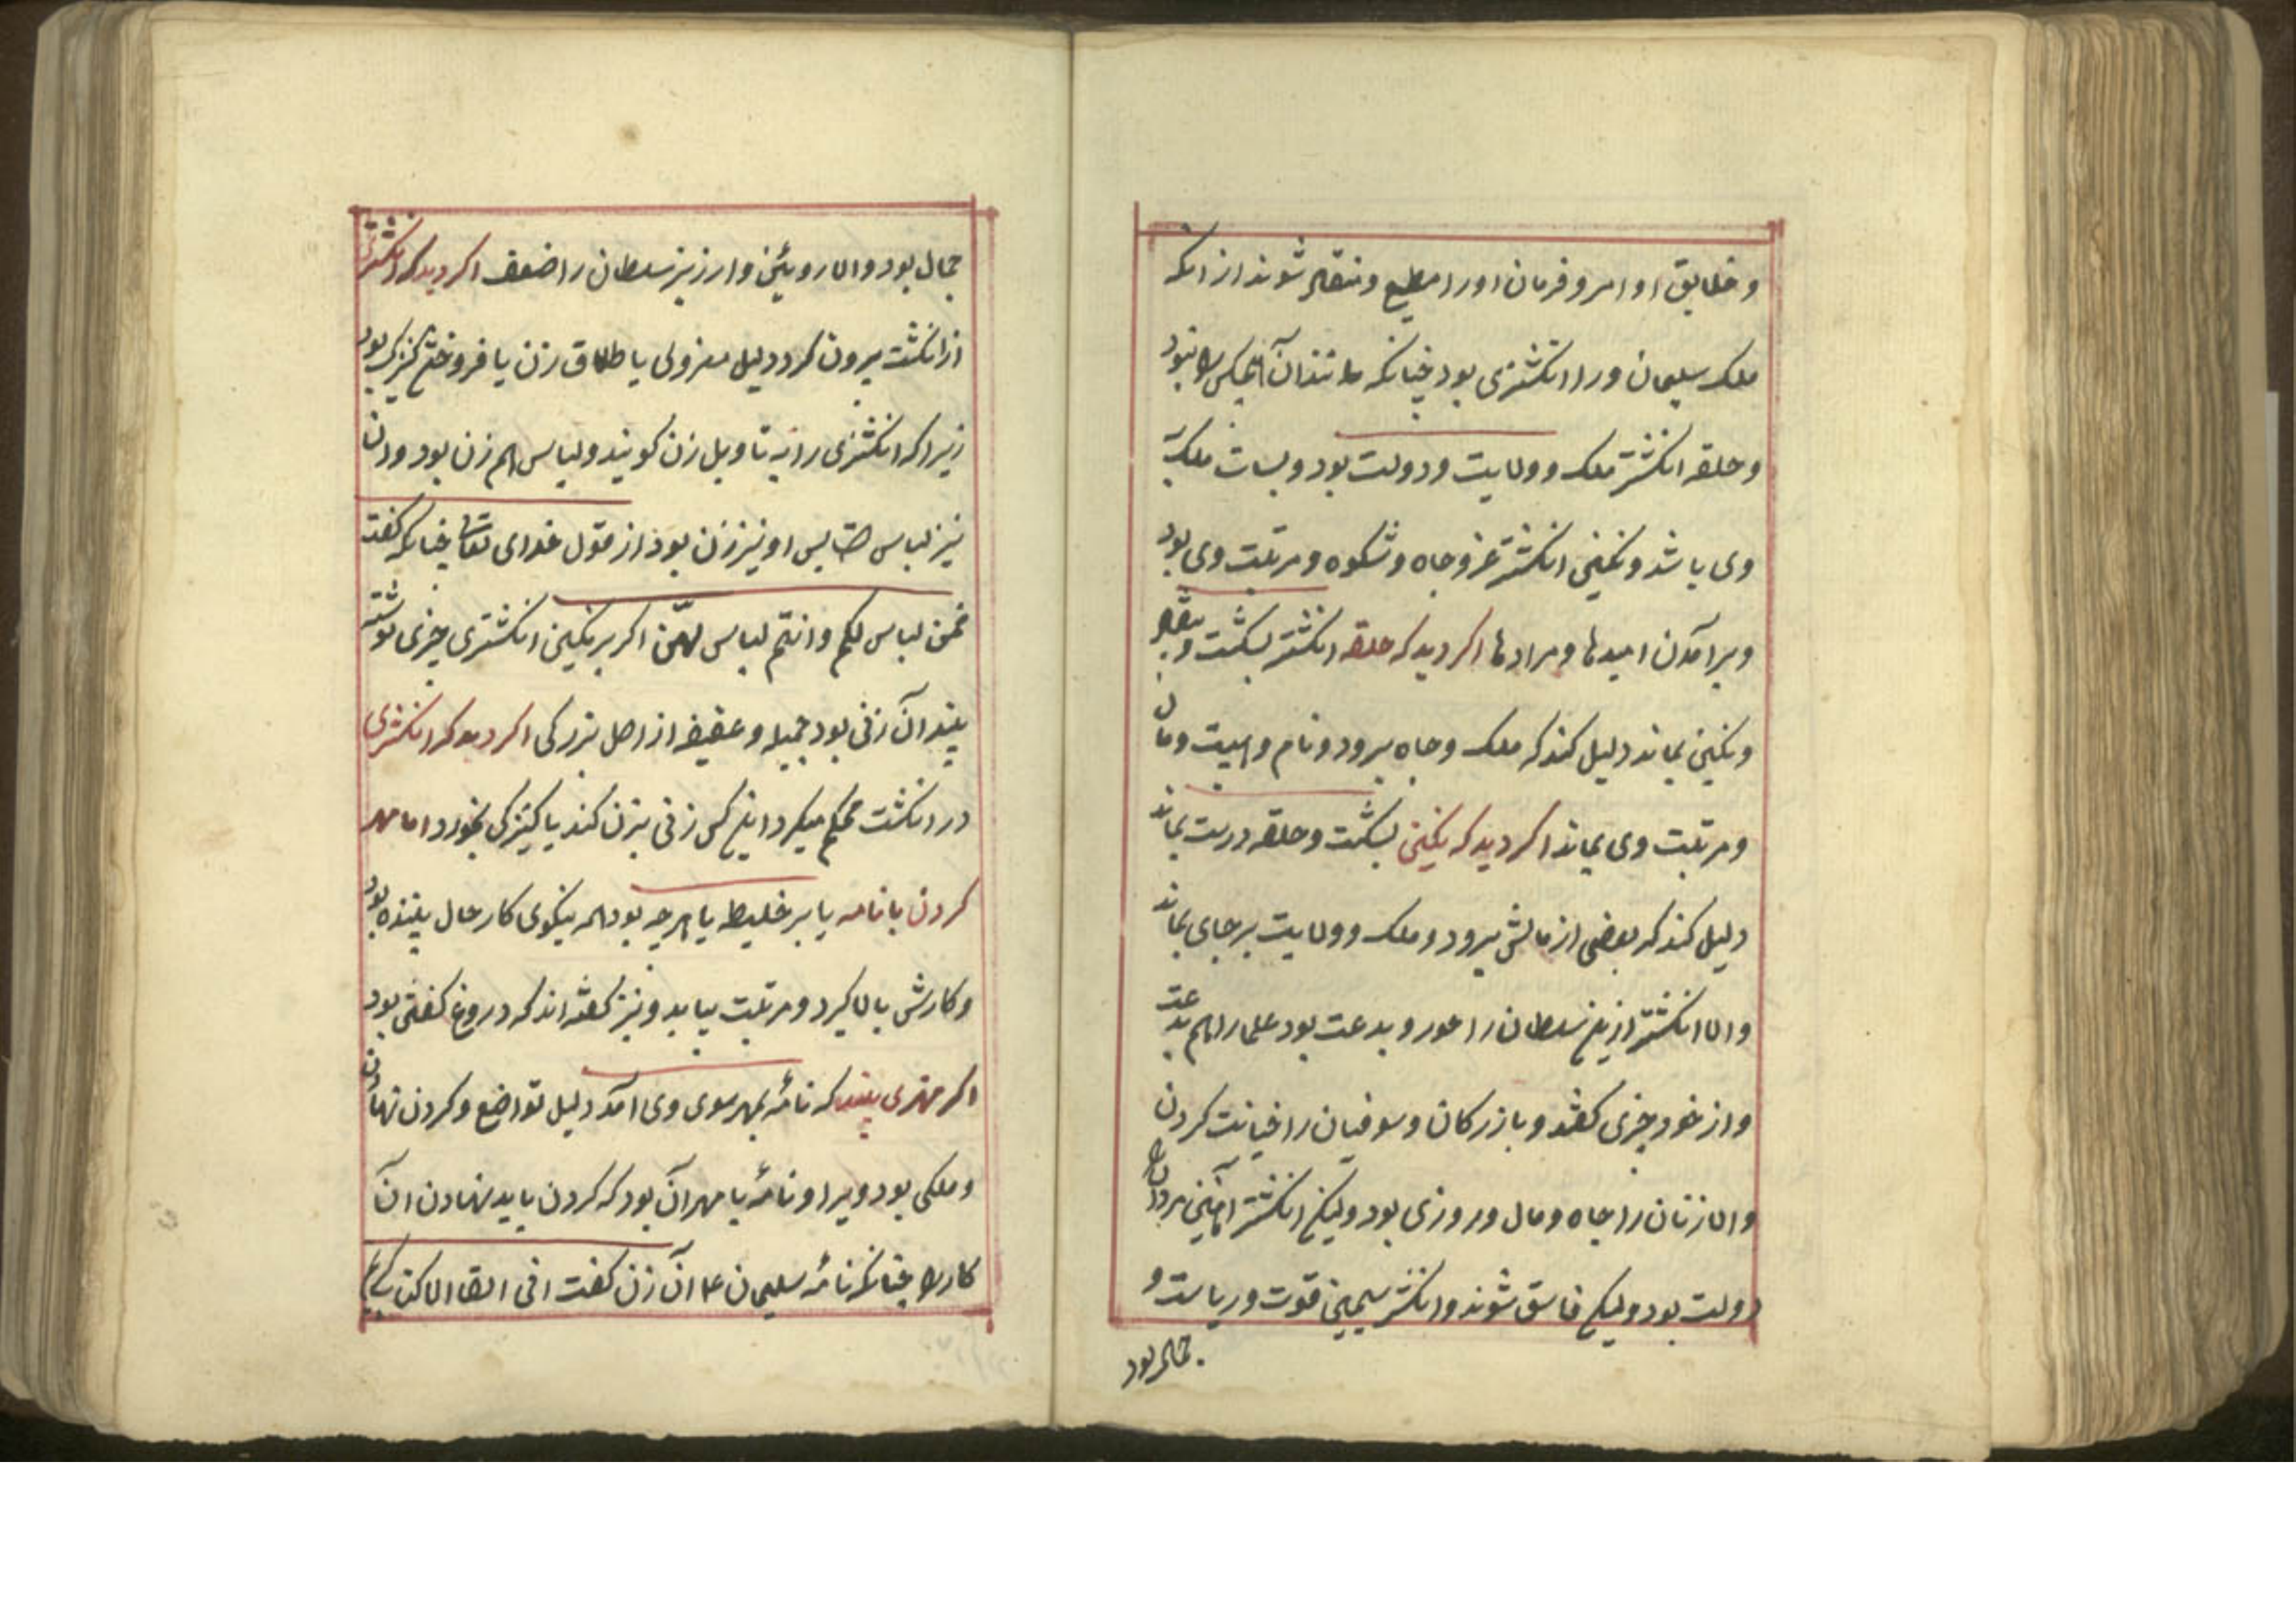 و خلایق اوامر و فرمان او را مطیع و منقاد شوند از انکه
ملک سلیمان ورا انکشتری بود چنانکه مانند آن هیچکس را نبود
و حلقه انکشتر ملک و ولایت و دولت بود و بسات ملک
وی باشد و نکین انکشتر عز و جاه و شکوه و مرتبت وی بود
و برآمدن امیدها و مرادها اکر دید که حلقه انکشتر بشکست و
و نکین بماند دلیل کند که ملک و جاه برود و نام و هیبت و مان
و مرتبت وی بماند اکر دید که نکین بشکست و حلقه درست بماند
دلیل کند که بعضی از مالش برود و ملک و ولایت بر جای بماند
و اما انکشتر ارزیز سلطان را جور و بدعت بود علما را هم بدعت
و از خود چیزی کفتند و بازرکان و سوقیان را خیانت کردن
و اما زنان را جاه و مال و روزی بود ولیکن انکشتر آهنین مردان را
دولت بود ولیکن فاسق شوند و انکشتر سیمین قوت و ریاست و
جمال بود
جمال بود و اما رویین و ارزیز سلطان را ضعف اکر دید که انکشتری
از انکشت بیرون کرد دلیل معزولی یا طلاق زن یا فروختن کنیزک بود
زیرا که انکشتری را به تاویل زن کویند و لباس هم زن بود و ان
نیز لباس او نیز زن بود از قول خدای تعالی چنانکه کفت
هن لباس لکم و انتم لباس لهنّ اکر بر نکین انکشتری چیزی نوشته
بیند آن زنی بود جمیله و عفیفه از اصل بزرکی اکر دید که انکشتری
در انکشت محکم میکرد این کس زنی بزن کند یا کنیزکی بخرد اما مهر
کردن بانامه یا بر خلیطه یا هرچه بود همه نیکوی کار حال بیننده بود
و کارش بالا کیرد و مرتبت بیابد و نیز کفته اند که دروغ کفتن بود
اکر مهری بیند که نامهٔ بمهر سوی وی آمد دلیل تواضع و کردن نهادن
و ملکی بود ویرا و نامهٔ با مهر آن بود که کردن باید نهادن ان
کار را چنانکه نامهٔ سلیمان ع آن زن کفت انی القا الی کتاب کریم